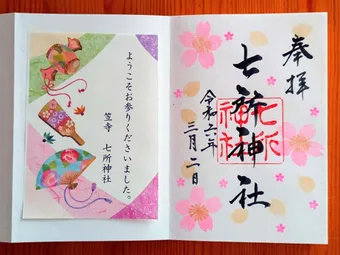 奉拝
七所神社
令和六年
三月二日
七所
神社
ようこそお参りくださいました。
笠寺 七所神社